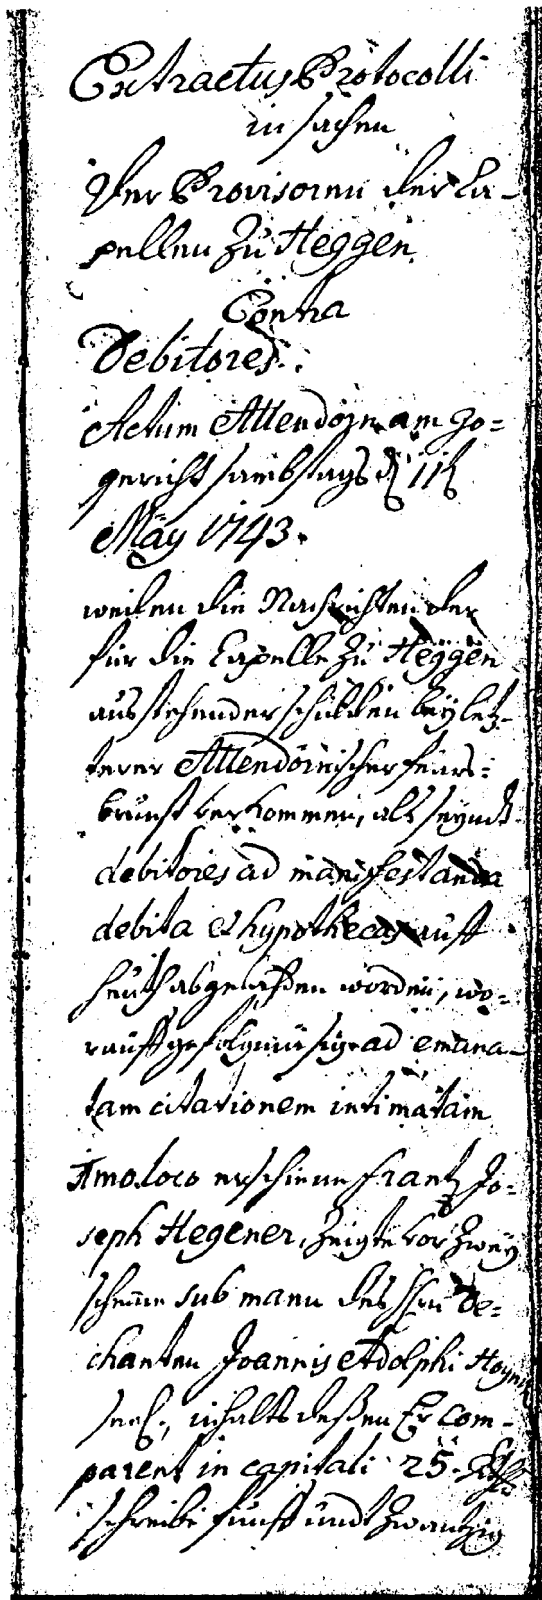 Extractus Protocolli
in sachen
Der Provisoren der Ca-
pellen zu Heggen
Contra
Debitores.
Actum Attendorn am Go=
gericht sambstags d 11t
May 1743.
weilen die Nachrichten der
für die Capelle zu Heggen
ausstehender schulden bey letz-
terer Attendornischer feürs=
brunst verkommen, als seyndt
debitores ad manifestanda
debita et hypothecas auff
heuth abgeladen worden, wo-
rauff gefolgt ad emana-
tam citationem intimatam
1mo loco erschiene Frantz Jo-
seph Hegener, zeigte vor zwey
scheine sub manu des Hrn De-
chanten Joannis Adolphi Hoynck
seel., inhalts deßen Er Com-
parent in capitali 25
schreibe fünff undt zwantzig